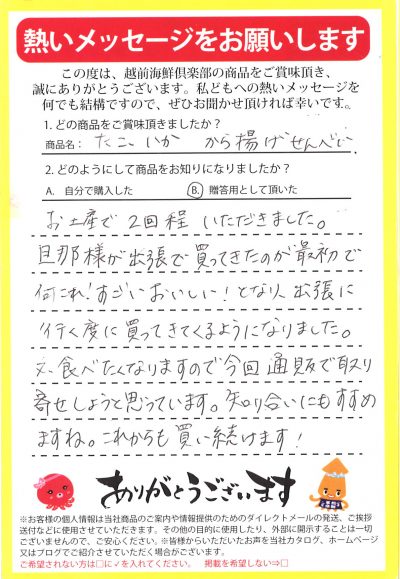 熱いメッセージをお願いします
この度は、越前海鮮倶楽部の商品をご賞味頂き、
誠にありがとうございます。私どもへの熱いメッセージを
何でも結構ですので、ぜひお聞かせ頂ければ幸いです。
1. どの商品をご賞味頂きましたか?
商品名: たこ、いか から揚げせんべい
2. どのようにして商品をお知りになりましたか?
A. 自分で購入した B. 贈答用として頂いた
お土産で2回程いただきました。
旦那様が出張で買ってきたのが最初で
何これ!すごいおいしい!となり、出張に
行く度に買ってきてくるようになりました。
又、食べたくなりますので今回通販で取り
寄せしようと思っています。知り合いにもすすめ
ますね。これからも買い続けます!
ありがとうございます
※お客様の個人情報は当社商品のご案内や情報提供のためのダイレクトメールの発送、ご挨拶
送付などに使用させていただきます。その他の目的に使用したり、外部に開示することは一切
ございませんので、ご安心ください。※皆様からいただいたお声を当社カタログ、ホームページ
又はブログでご紹介させていただく場合がございます。
ご希望されない方は□に✓を入れてください。 掲載を希望しない⇒□